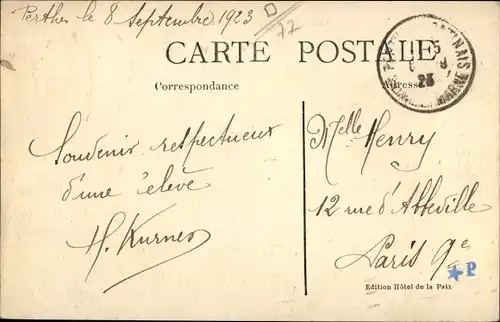 Perthes le 8 Septembre 1923
77
CARTE POSTALE
Correspondance
Adresse
GATINAIS
23
MARNE
Souvenir respectueux
d'une élève
H. Kurner
Melle Henry
12 rue d'Abbeville
Paris 9e
P
Edition Hôtel de la Paix